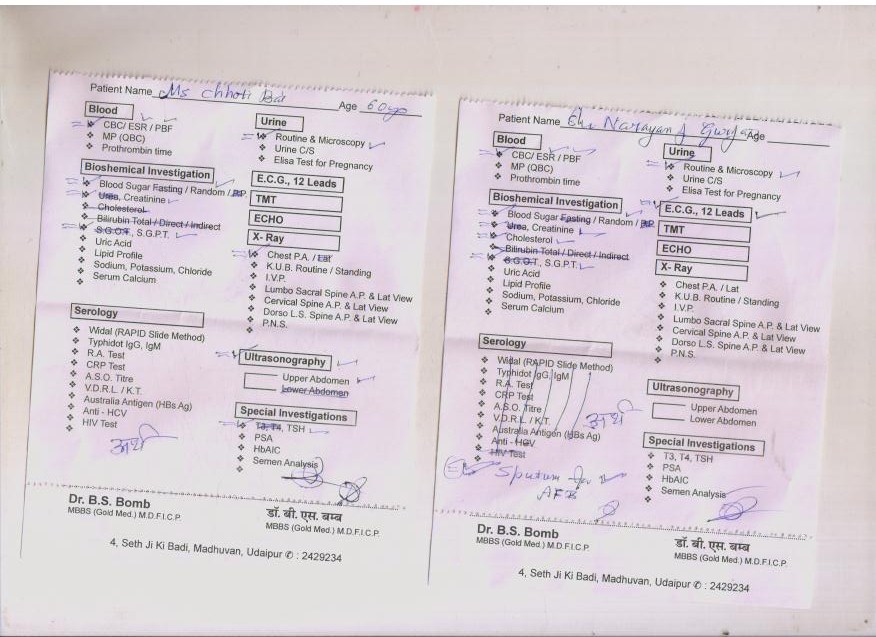 Patient Name Ms Chhoti Bai Age 60
Blood
❖ CBC/ ESR / PBF
❖ MP (QBC)
❖ Prothrombin time
Bioshemical Investigation
❖ Blood Sugar Fasting / Random / P.P.
❖ Urea, Creatinine
❖ Cholesterol
❖ Bilirubin Total / Direct / Indirect
❖ S.G.O.T., S.G.P.T.
❖ Uric Acid
❖ Lipid Profile
❖ Sodium, Potassium, Chloride
❖ Serum Calcium
Serology
❖ Widal (RAPID Slide Method)
❖ Typhidot IgG, IgM
❖ R.A. Test
❖ CRP Test
❖ A.S.O. Titre
❖ V.D.R.L. / K.T.
❖ Australia Antigen (HBs Ag)
❖ Anti - HCV
❖ HIV Test
Urine
❖ Routine & Microscopy
❖ Urine C/S
❖ Elisa Test for Pregnancy
E.C.G., 12 Leads
TMT
ECHO
X- Ray
❖ Chest P.A. / Lat
❖ K.U.B. Routine / Standing
❖ I.V.P.
❖ Lumbo Sacral Spine A.P. & Lat View
❖ Cervical Spine A.P. & Lat View
❖ Dorso L.S. Spine A.P. & Lat View
❖ P.N.S.
Ultrasonography
Upper Abdomen
Lower Abdomen
Special Investigations
❖ T3, T4, TSH
❖ PSA
❖ HbAIC
❖ Semen Analysis
Dr. B.S. Bomb
MBBS (Gold Med.) M.D.F.I.C.P.
डॉ. बी. एस. बम्ब
MBBS (Gold Med.) M.D.F.I.C.P.
4, Seth Ji Ki Badi, Madhuvan, Udaipur ✆ : 2429234
Patient Name Narayan Gurjar Age
Blood
❖ CBC/ ESR / PBF
❖ MP (QBC)
❖ Prothrombin time
Bioshemical Investigation
❖ Blood Sugar Fasting / Random / P.P.
❖ Urea, Creatinine
❖ Cholesterol
❖ Bilirubin Total / Direct / Indirect
❖ S.G.O.T., S.G.P.T.
❖ Uric Acid
❖ Lipid Profile
❖ Sodium, Potassium, Chloride
❖ Serum Calcium
Serology
❖ Widal (RAPID Slide Method)
❖ Typhidot IgG, IgM
❖ R.A. Test
❖ CRP Test
❖ A.S.O. Titre
❖ V.D.R.L. / K.T.
❖ Australia Antigen (HBs Ag)
❖ Anti - HCV
❖ HIV Test
Sputum for
AFB
Urine
❖ Routine & Microscopy
❖ Urine C/S
❖ Elisa Test for Pregnancy
E.C.G., 12 Leads
TMT
ECHO
X- Ray
❖ Chest P.A. / Lat
❖ K.U.B. Routine / Standing
❖ I.V.P.
❖ Lumbo Sacral Spine A.P. & Lat View
❖ Cervical Spine A.P. & Lat View
❖ Dorso L.S. Spine A.P. & Lat View
❖ P.N.S.
Ultrasonography
Upper Abdomen
Lower Abdomen
Special Investigations
❖ T3, T4, TSH
❖ PSA
❖ HbAIC
❖ Semen Analysis
Dr. B.S. Bomb
MBBS (Gold Med.) M.D.F.I.C.P.
डॉ. बी. एस. बम्ब
MBBS (Gold Med.) M.D.F.I.C.P.
4, Seth Ji Ki Badi, Madhuvan, Udaipur ✆ : 2429234